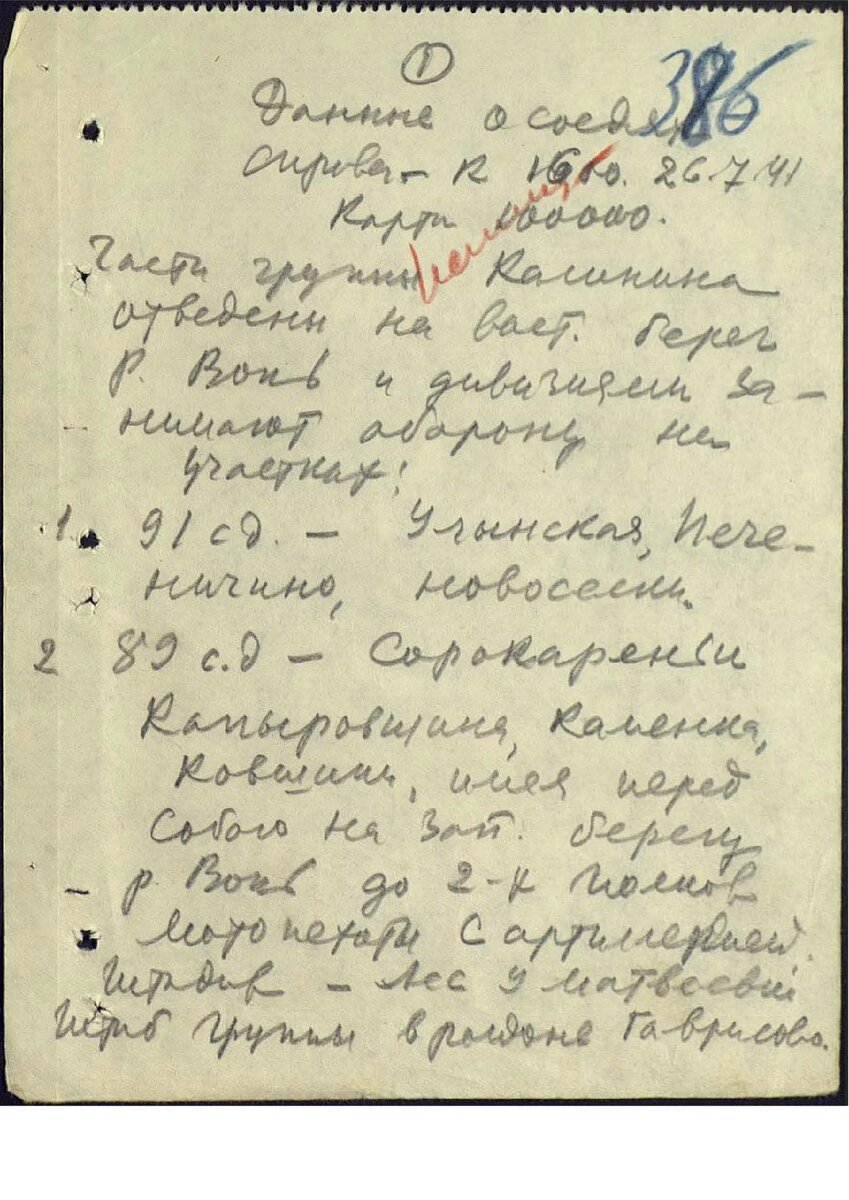 1
386
Данные о соседях
справа – к 16 00. 26.7.41
Карта 100000.
Части группы Калинина
отведены на вост. берег
р. Вопь и дивизиями за-
нимают оборону на
участках:
1. 91 сд. – Учынская, Пече-
ничино, Новоселки.
2 89 с.д – Сорокарен
Капыровщина, Каменка,
Ковшичи, имея перед
собою на зап. берегу
– р. Вопь до 2-х полков
мотопехоты с артиллерией.
Штадив – лес у Матвеев
Штаб группы в районе Гаврилово.